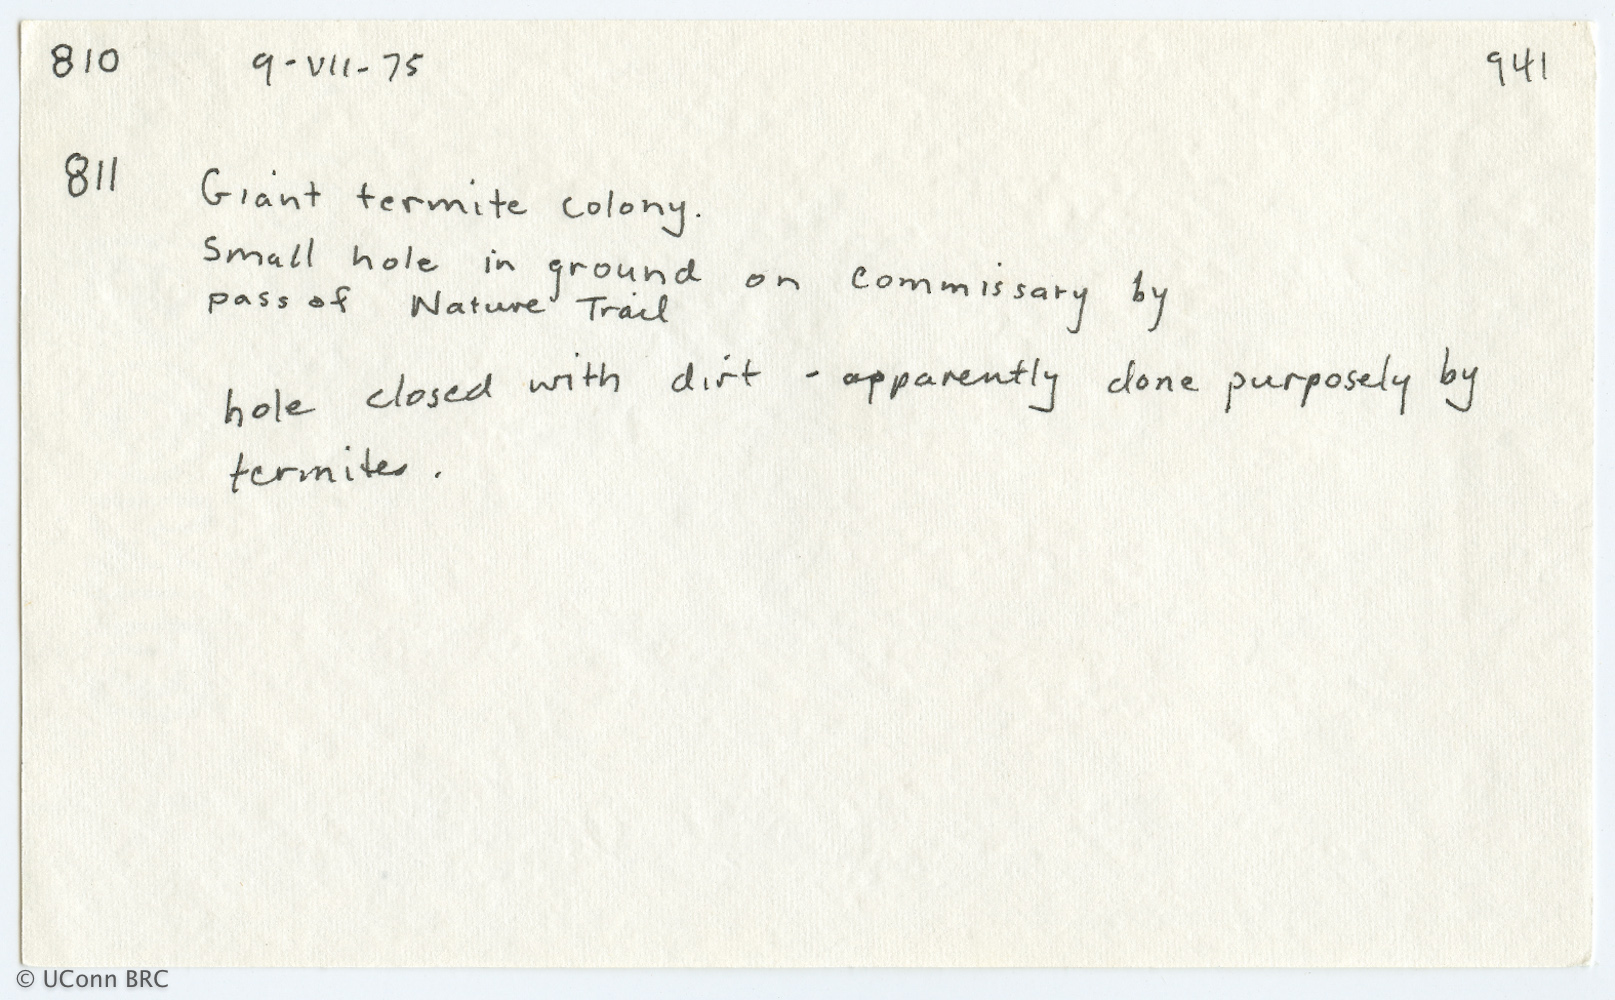 810 9-VII-75 941
811 Giant termite colony.
Small hole in ground on commissary by
pass of Nature Trail
hole closed with dirt - apparently done purposely by
termites.
© UConn BRC